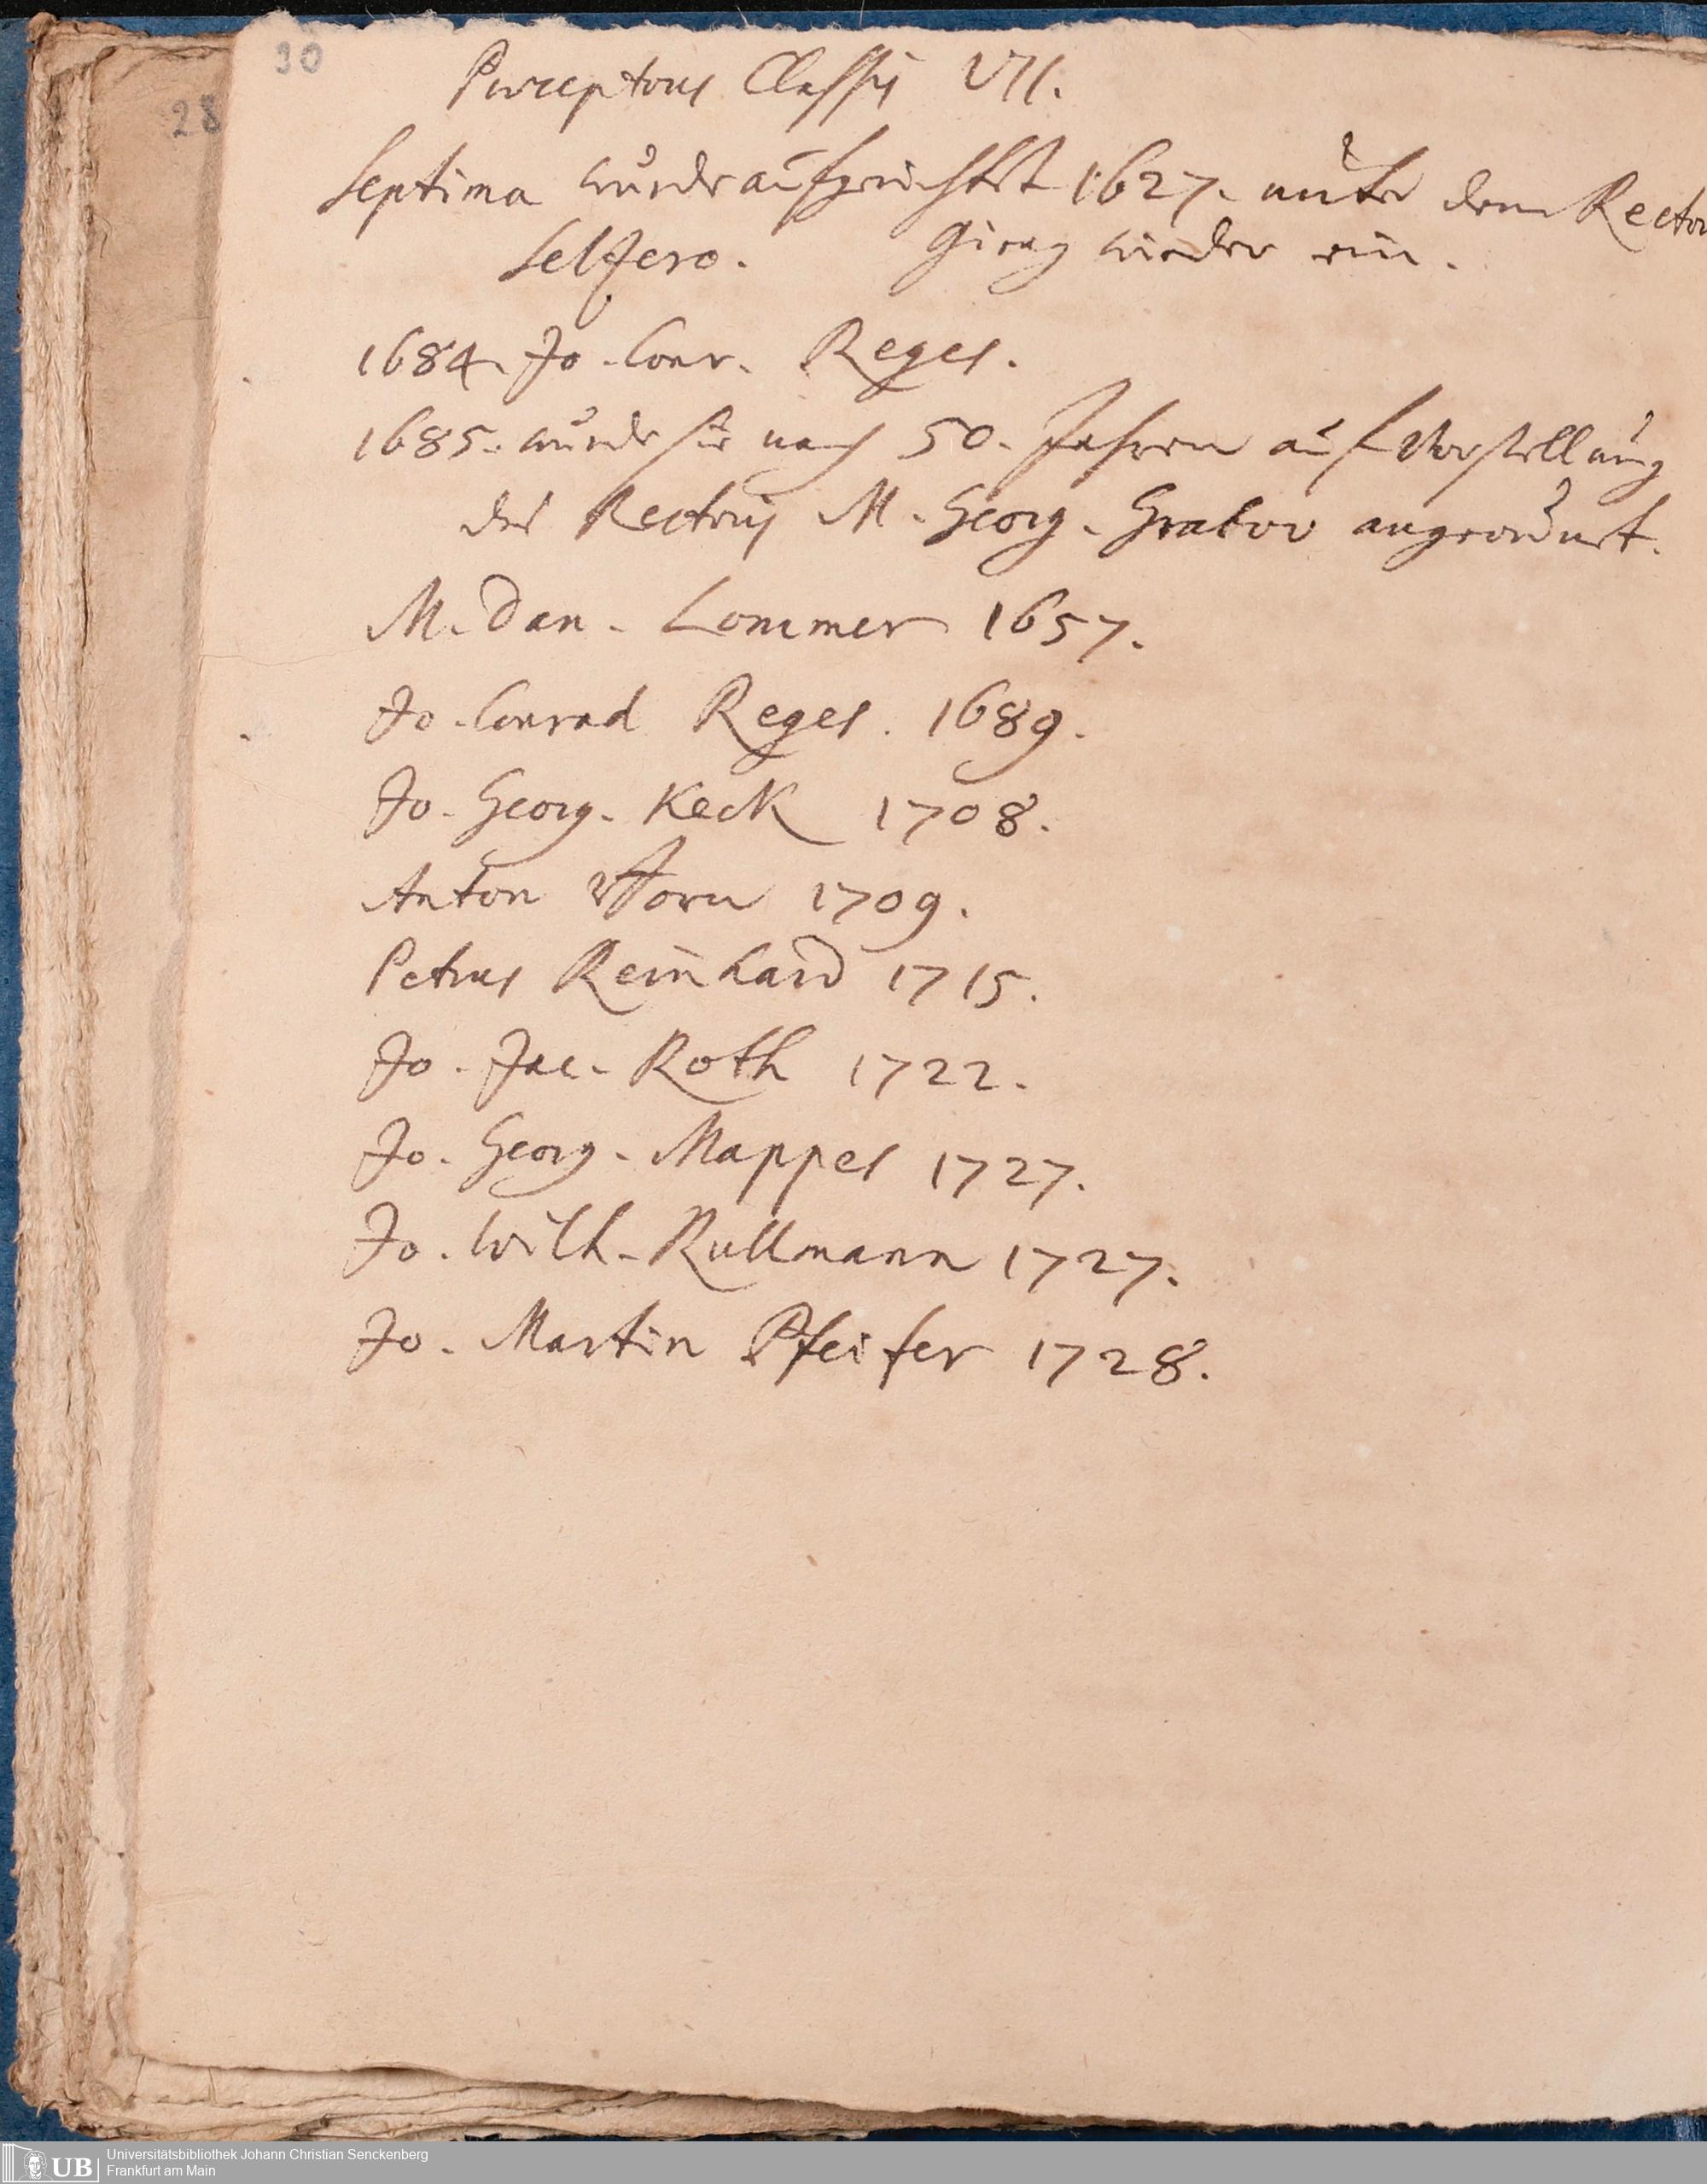 30
28
Praeceptores Classis VII.
Septima wurde aufgerichtet 1627. unter dem Rector
Selzero. Gieng wieder ein.
1684. Jo. Conr. Reges.
1685. wurde sie nach 50. Jahren auf Vorstellung
des Rectoris M. Georg. Grabov angeordnet.
M. Dan. Lommer 1657.
Jo. Conrad Reges. 1689.
Jo. Georg. Keck 1708.
Anton Horn 1709.
Petrus Reinhard 1715.
Jo. Jac. Roth 1722.
Jo. Georg. Mappes 1727.
Jo. Wilh. Rullmann 1727.
Jo. Martin Pfeifer 1728.
UB
Universitätsbibliothek Johann Christian Senckenberg
Frankfurt am Main